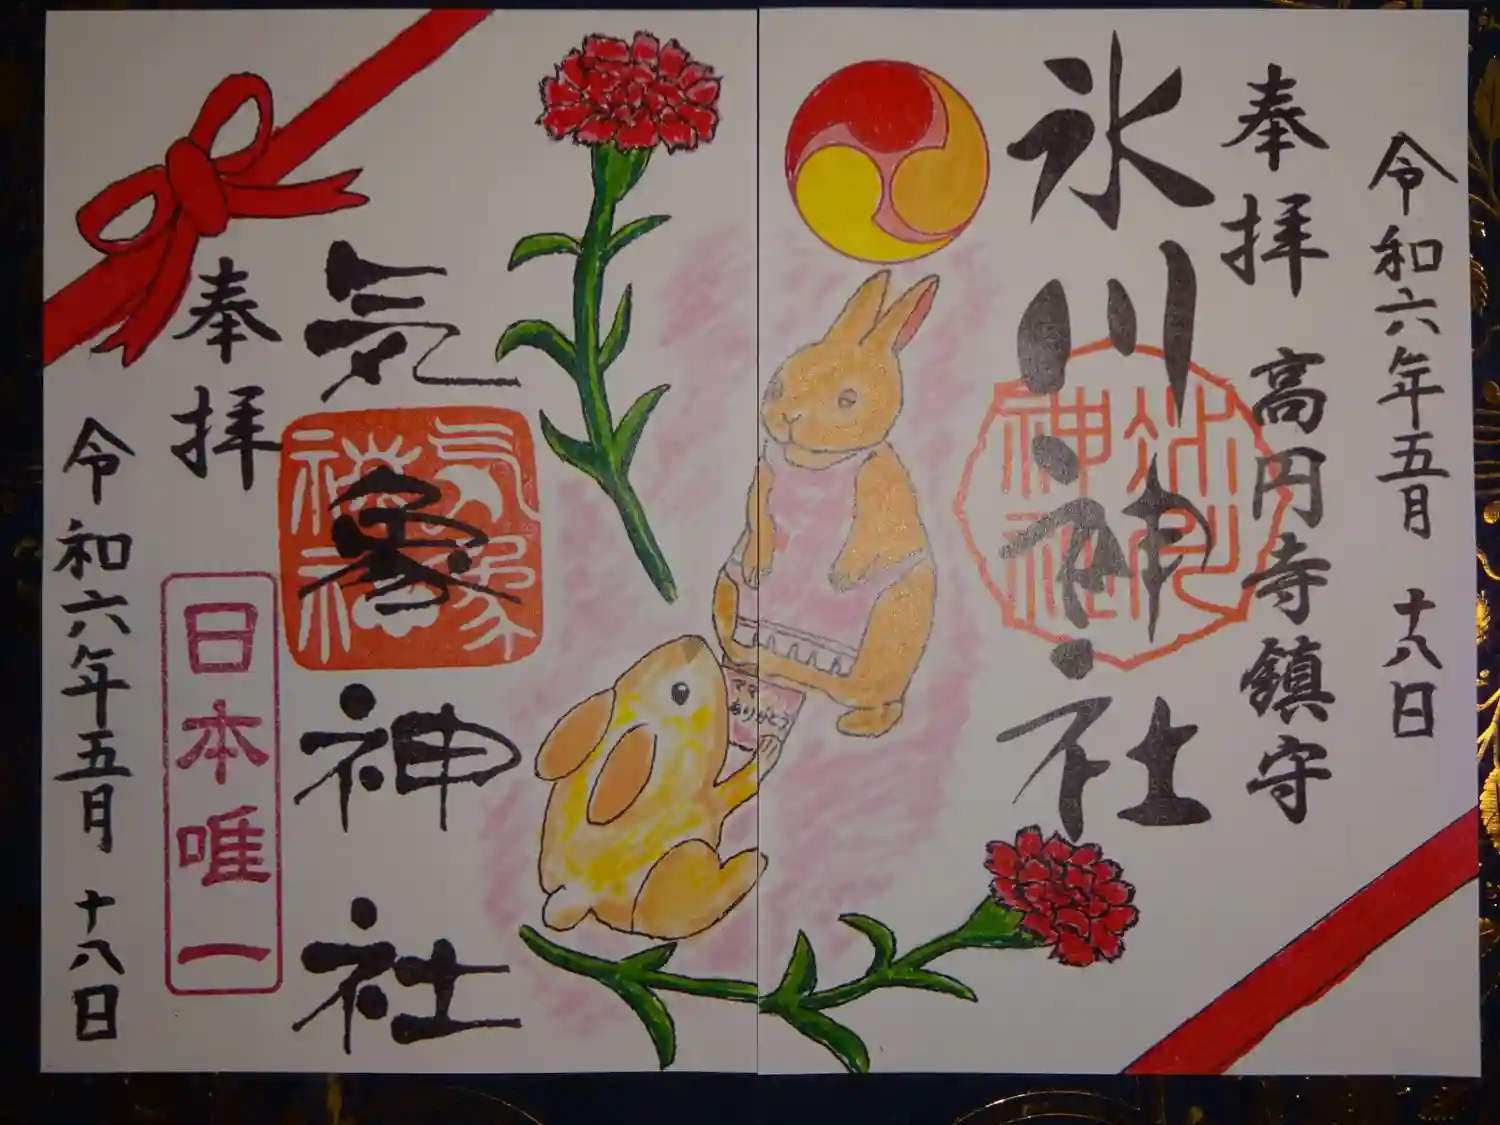 令和六年五月 十八日
奉拝 高円寺鎮守
氷川神社
氷川
神社
ママ
ありがとう
気象神社
気象
神社
奉拝
日本唯一
令和六年五月 十八日